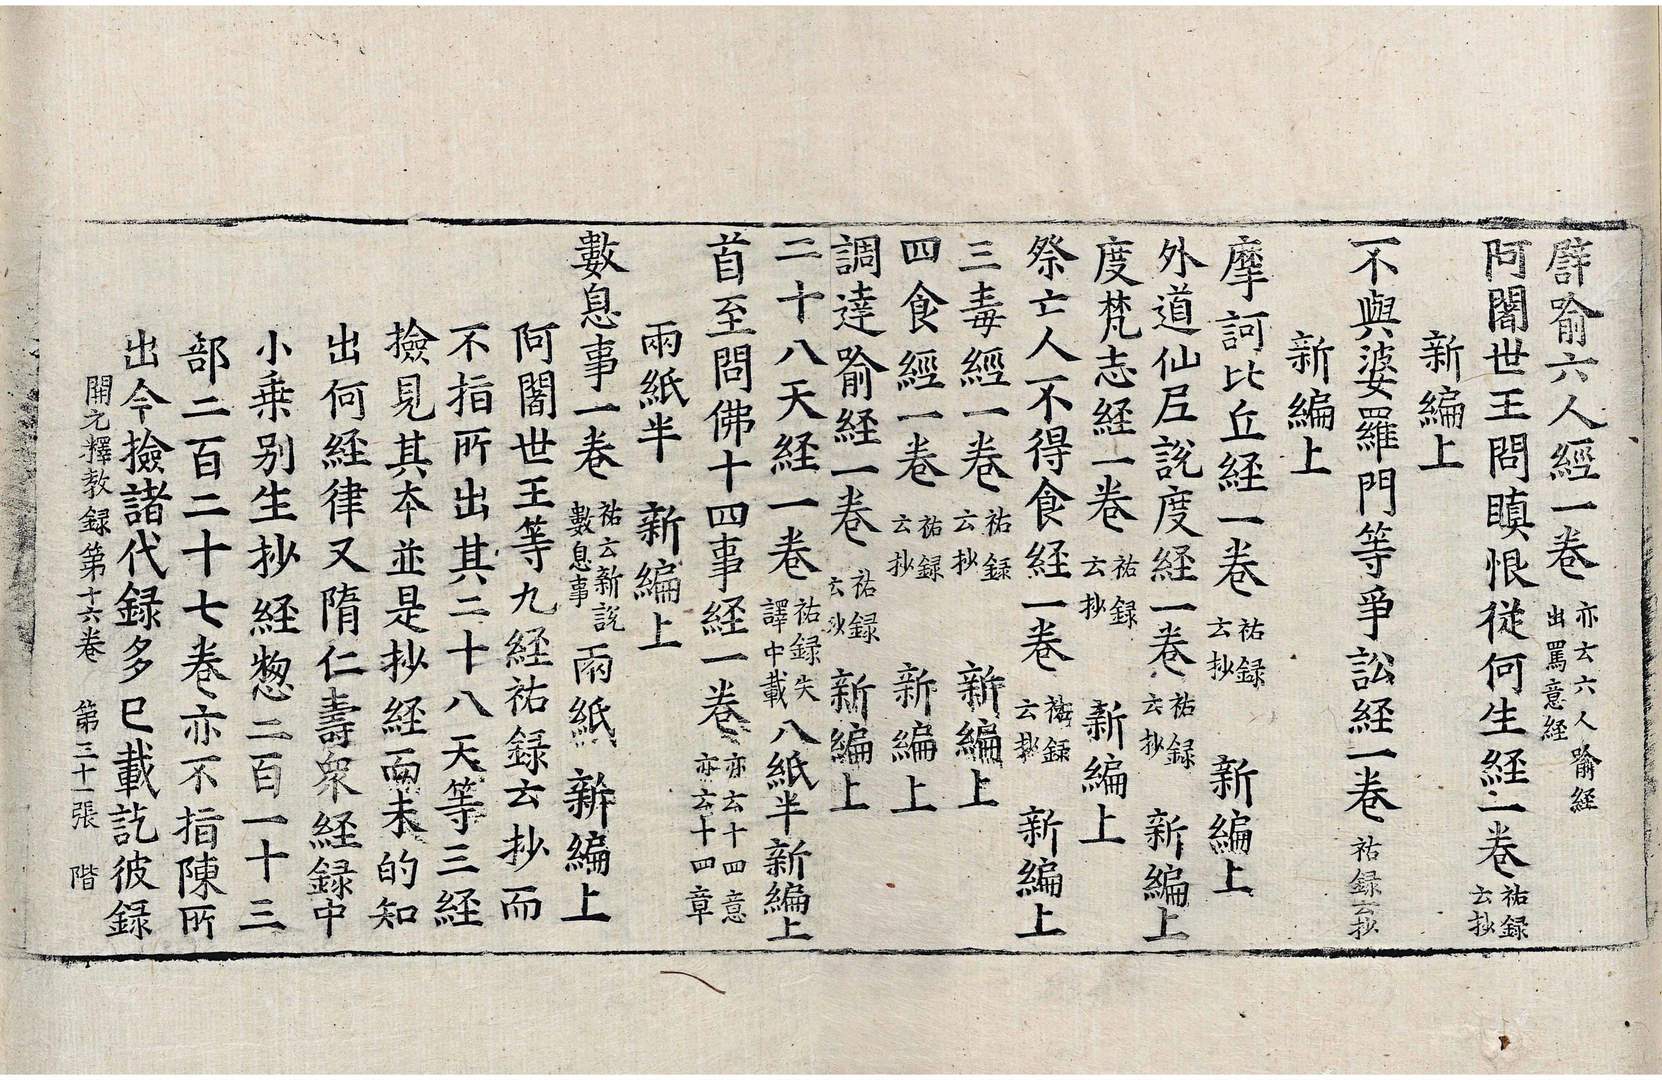 譬喻六人經一卷 亦云六人喻経 出罵意経
阿闍世王問瞋恨從何生経一卷 祐録云抄
新編上
不與婆羅門等爭訟経一卷 祐録云抄
新編上
摩訶比丘経一卷 祐録云抄 新編上
外道仙尼說度経一卷 祐録云抄 新編上
度梵志経一卷 祐録云抄 新編上
祭亡人不得食経一卷 祐録云抄 新編上
三毒經一卷 祐録云抄 新編上
四食經一卷 祐録云抄 新編上
調達喻経一卷 祐録云抄 新編上
二十八天経一卷 祐録失譯中載 八紙半新編上
首至問佛十四事経一卷 亦云十四意 亦云十四章
兩紙半 新編上
數息事一卷 祐云新說數息事 兩紙 新編上
阿闍世王等九経祐録云抄而
不指所出其二十八天等三経
撿見其本並是抄経而未的知
出何経律又隋仁壽衆経録中
小乗别生抄経惣二百一十三
部二百二十七卷亦不指陳所
出今撿諸代録多已載訖彼録
開元釋教録第十六卷 第三十一張 階